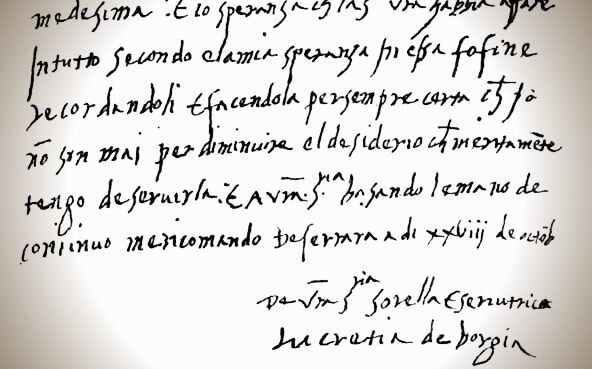 medesima · E io speranza
In tutto secondo la mia speranza
recordandoli e facendola per sempre certa
nō son mai per diminuire el desiderio ch meritamēte
tengo de servirla. E A Vrā. Sria basando le mano de
continuo me ricomando De ferrara a di xxviij de octob
De Vrā Sria sorella e servitrice
Lucretia de borgia